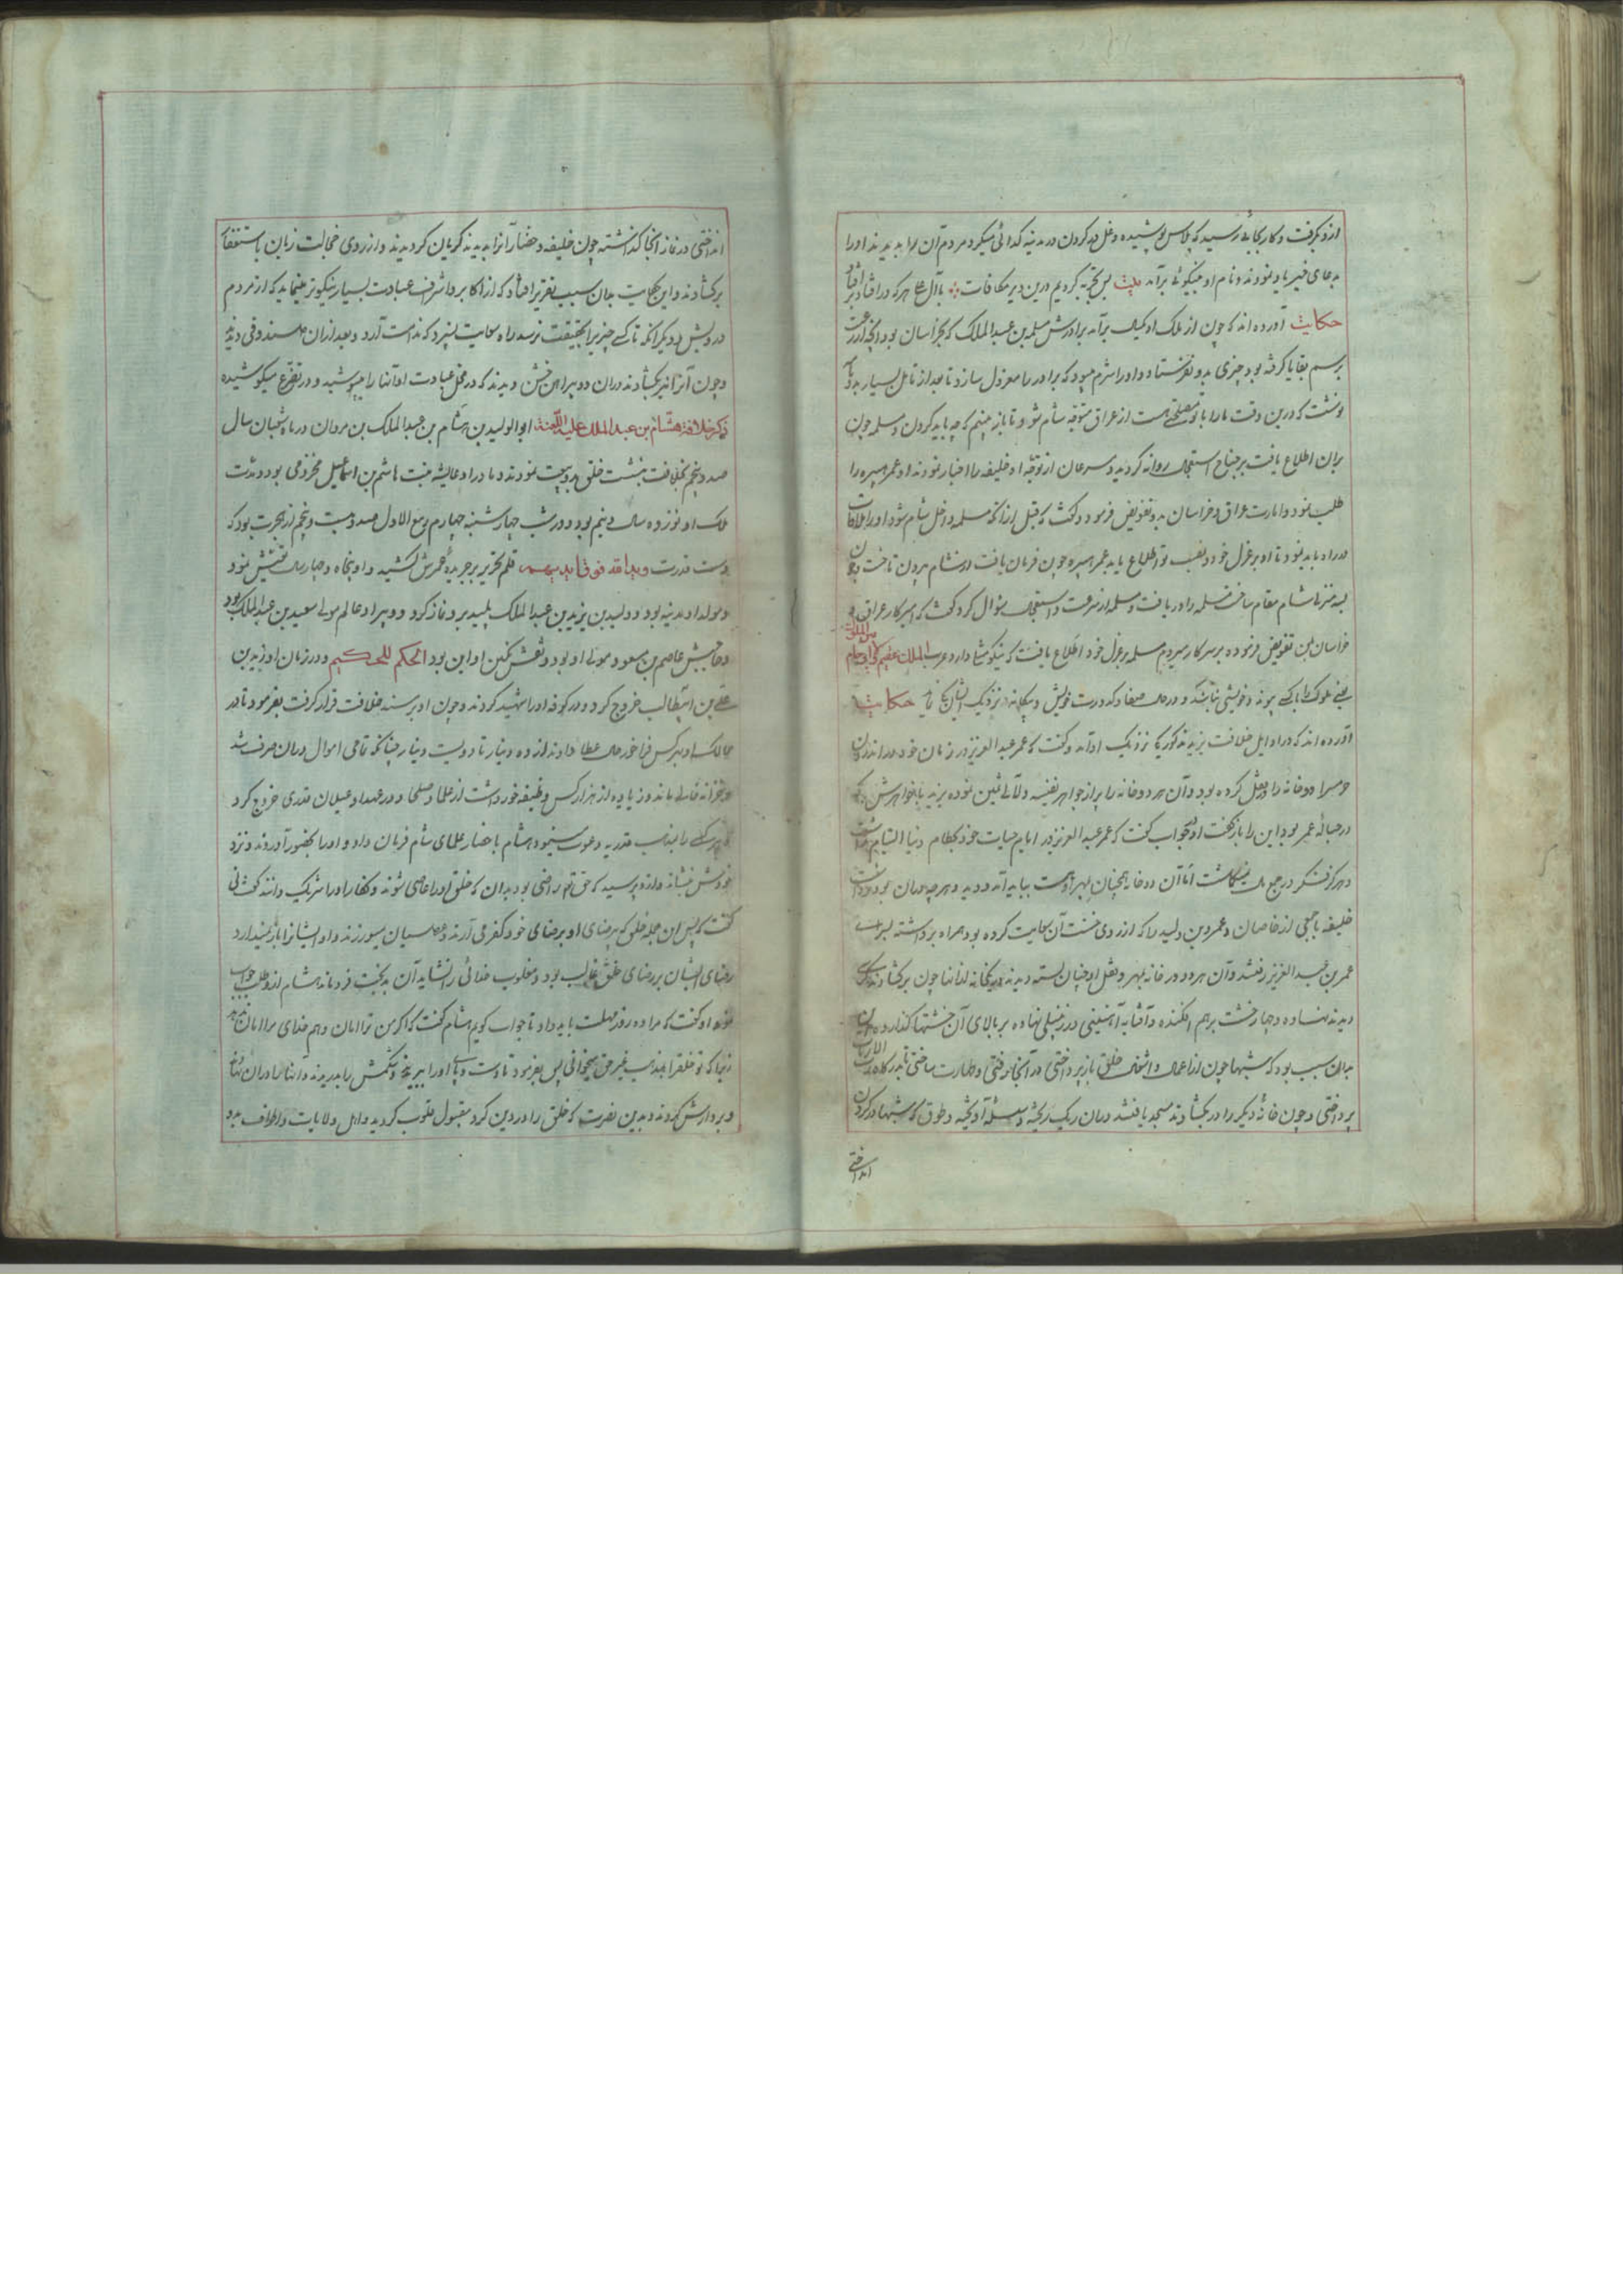 از و بگرفت و کار بجائی رسید که پلاس پوشیده و غل در کردن در مدینه کدائی میکرد مردم آن را بدیدند او را
بدعای خیر یاد نمودند و نام او بنیکوئی برآمد بیت بس تجربه کردیم درین دیر مکافات با آل علی هر که در افتاد بر افتاد
حکایت آورده اند که چون از ملک او یکسال برآمد برادرش مسلمه بن عبدالملک که بخراسان بود آنچه از رعیت
برسم بقایا گرفته بود چیزی بدو نفرستاد و او را شرم میبود که برادر را معزول سازد تا بعد از تامل بسیار بدو نامه
نوشت که درین وقت ما را با تو مصلحتی هست از عراق متوجه شام شو تا باز بینم که چه باید کردن و مسلمه چون
بران اطلاع یافت بر جناح استعجال روانه کردید و مسرعان از توجه او خلیفه را اخبار نمودند او عمر هبیره را
طلب نمود و امارت عراق و خراسان بدو تفویض فرمود و گفت که قبل از انکه مسلمه داخل شام شود او را ملاقات
در راه باید نمود تا او بر عزل خود و نصب تو اطلاع یابد عمر هبیره چون فرمان یافت از شام بیرون تاخت و چون
بسه منزل شام مقام ساخت مسلمه را دریافت و مسلمه از سرعت و استعجال سؤال کرد گفت که امیر کار عراق و
خراسان بمن تفویض فرموده بر سر کار میروم مسلمه بر عزل خود اطلاع یافت که نیکو مثلی دارد عرب الملک عقیم
یعنی ملوک را با کسی پیوند و خویشی نباشد و در حال صفا و کدورت خویش و بیکانه نزدیک ایشان یکی حکایت
آورده اند که در اوایل خلافت یزید مذکور یکی نزدیک او آمد و گفت که عمر عبدالعزیز در زمان خود در اندرون
حرمسرا دو خانه را در مقفل کرده بود و آن هر دو خانه را پر از جواهر نفیسه و لآلی ثمین نموده یزید با خواهرش که
در حبالهٔ عمر بود این را باز گفت او بجواب گفت که عمر عبدالعزیز در ایام حیات خود بحطام دنیا التیام نداشت
و هرگز فکر در جمع مال نمیکماشت اما آن دو خانه همچنان بمهر اوست بیایید آمد و دید و هر چه در ان بود برداشت
خلیفه با جمعی از خاصان و عمر بن ولید را که از روی خست آن سعایت کرده بود همراه برداشته بسرای
عمر بن عبد العزیز رفتند و آن هر دو در خانه بمهر و قفل او چنان بسته دیدند یکخانه از انها چون برکشادند کرسی
دیدند نهاده و چهار خشت بر هم افکنده و آفتابه آهنینی در زنبیلی نهاده بر بالای آن خشتها گذارده و این
بدان سبب بود که شبها چون از اعمال و اشغال خلق باز پرداختی در آنجا رفتی و طهارت ساختی تا بدرگاه رب الارباب
پرداختی و چون خانهٔ دیکر را در بکشادند مسجد یافتند در ان ریک ریخته و سلسله آویخته و طوق که شبها در کردن
انداختی
انداختی در نماز آنجا گذاشته چون خلیفه و حضار آنرا بدیدند گریان گردیدند و از روی خجالت زبان باستغفار
برکشادند و این حکایت بدان سبب بتقریر افتاد که از اکابر و اشراف عبادت بسیار نیکوتر مینماید که از مردم
درویش و دیگر آنکه تا کسی چیزی را بحقیقت نرسد راه سعایت نسپرد که ندامت آرد و بعد از ان صندوقی دیدند
و چون آنرا نیز بکشادند در ان دو پیراهن خشن دیدند که در محل عبادت او آنها را میپوشید و در تضرع میکوشیده
ذکر خلافت هشام بن عبد الملک علیه اللعنه ابو الولید بن هشام بن عبد الملک بن مروان در ماه شعبان سال
صد و پنجم بخلافت بنشست خلق بدو بیعت نمودند و مادر او عایشه بنت هاشم بن اسماعیل مخزومی بود و مدت
ملک او نوزده سال و نیم بود و در شب چهارشنبه چهارم ربیع الاول صد و بیست و پنجم از هجرت بود که
دست قدرت ید الله فوق ایدیهم قلم تحریر بر جریدهٔ عمرش کشید و او پنجاه و چهار سال تعیش نمود
و مولد او مدینه بود و ولید بن یزید بن عبد الملک پلید برو نماز کرد و دبیر او عالم مولی سعید بن عبد الملک بود
و حاجبش عاصم بن مسعود مولی او بود و نقش نگین او این بود الحکم للحکیم و در زمان او زید بن
علی بن ابیطالب خروج کرد و در کوفه او را شهید کردند و چون او بر مسند خلافت قرار گرفت بفرمود تا در
ممالک او بهر کس فراخور حال عطا دادند از ده دینار تا دویست دینار چنانکه تمامی اموال در ان صرف شد
و خزانه خالی ماند و زیاده از هزار کس وظیفه خور داشت از علما و صلحا و در عهد او غیلان قدری خروج کرد
و هر کسی را بمذهب قدریه دعوت مینمود هشام باحضار علمای شام فرمان داد و او را بحضور آوردند و نزد
خودش بنشاند و ازو پرسید که حق تعالی راضی بود بدان که خلق او را عاصی شوند و کفار او را شریک دانند گفت نی
گفت که پس این جمله خلق که برضای او برضای خود کفر می آرند و عصیان میورزند و او ایشانرا باز نمیدارد
رضای ایشان بر رضای حق غالب بود و مغلوب خدائی را نشاید آن بدبخت فرو ماند هشام ازو طلب جواب
نمود او گفت که مرا ده روز مهلت باید داد تا جواب کویم هشام گفت که اگر من ترا امان دهم خدای مرا امان ندهد
زیرا که تو خلق را بمذهب غیر حق میخوانی پس بفرمود تا دست و پای او را ببریدند و شکمش را بدریدند و آنها را در ان نهادند
و بر دارش کردند و بدین نصرت که خلق را در دین کرد مقبول قلوب کردید و اهل ولایات و اطراف بدو